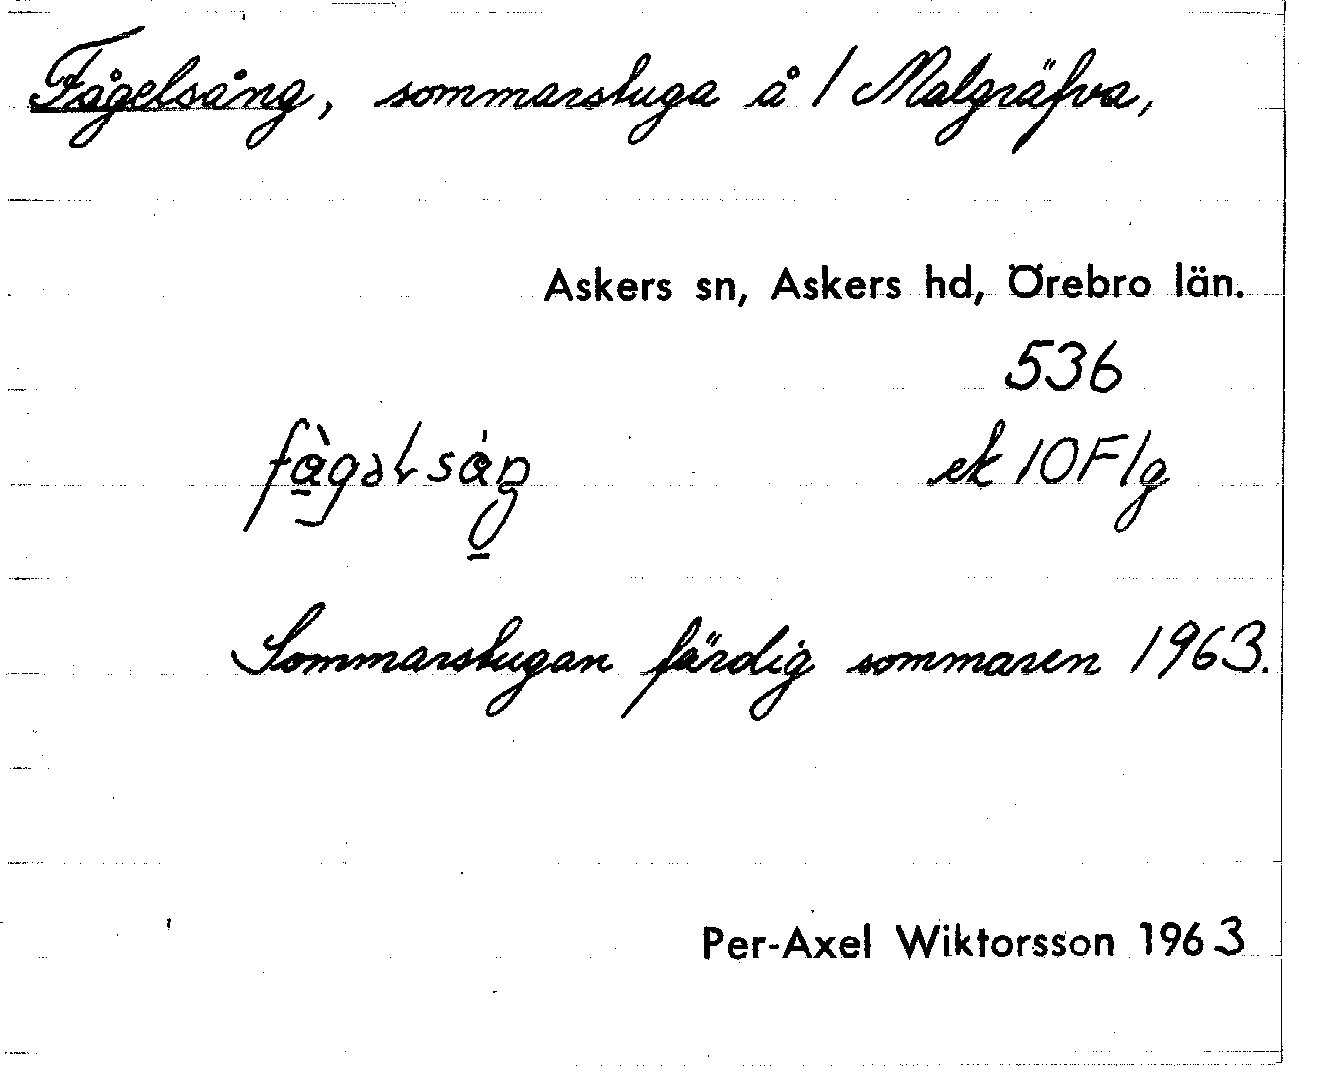 Fågelsång, sommarstuga å 1 Malgräfva,
Askers sn, Askers hd, Örebro län.
536
ek 10F1g
Sommarstugan färdig sommaren 1963.
Per-Axel Wiktorsson 1963